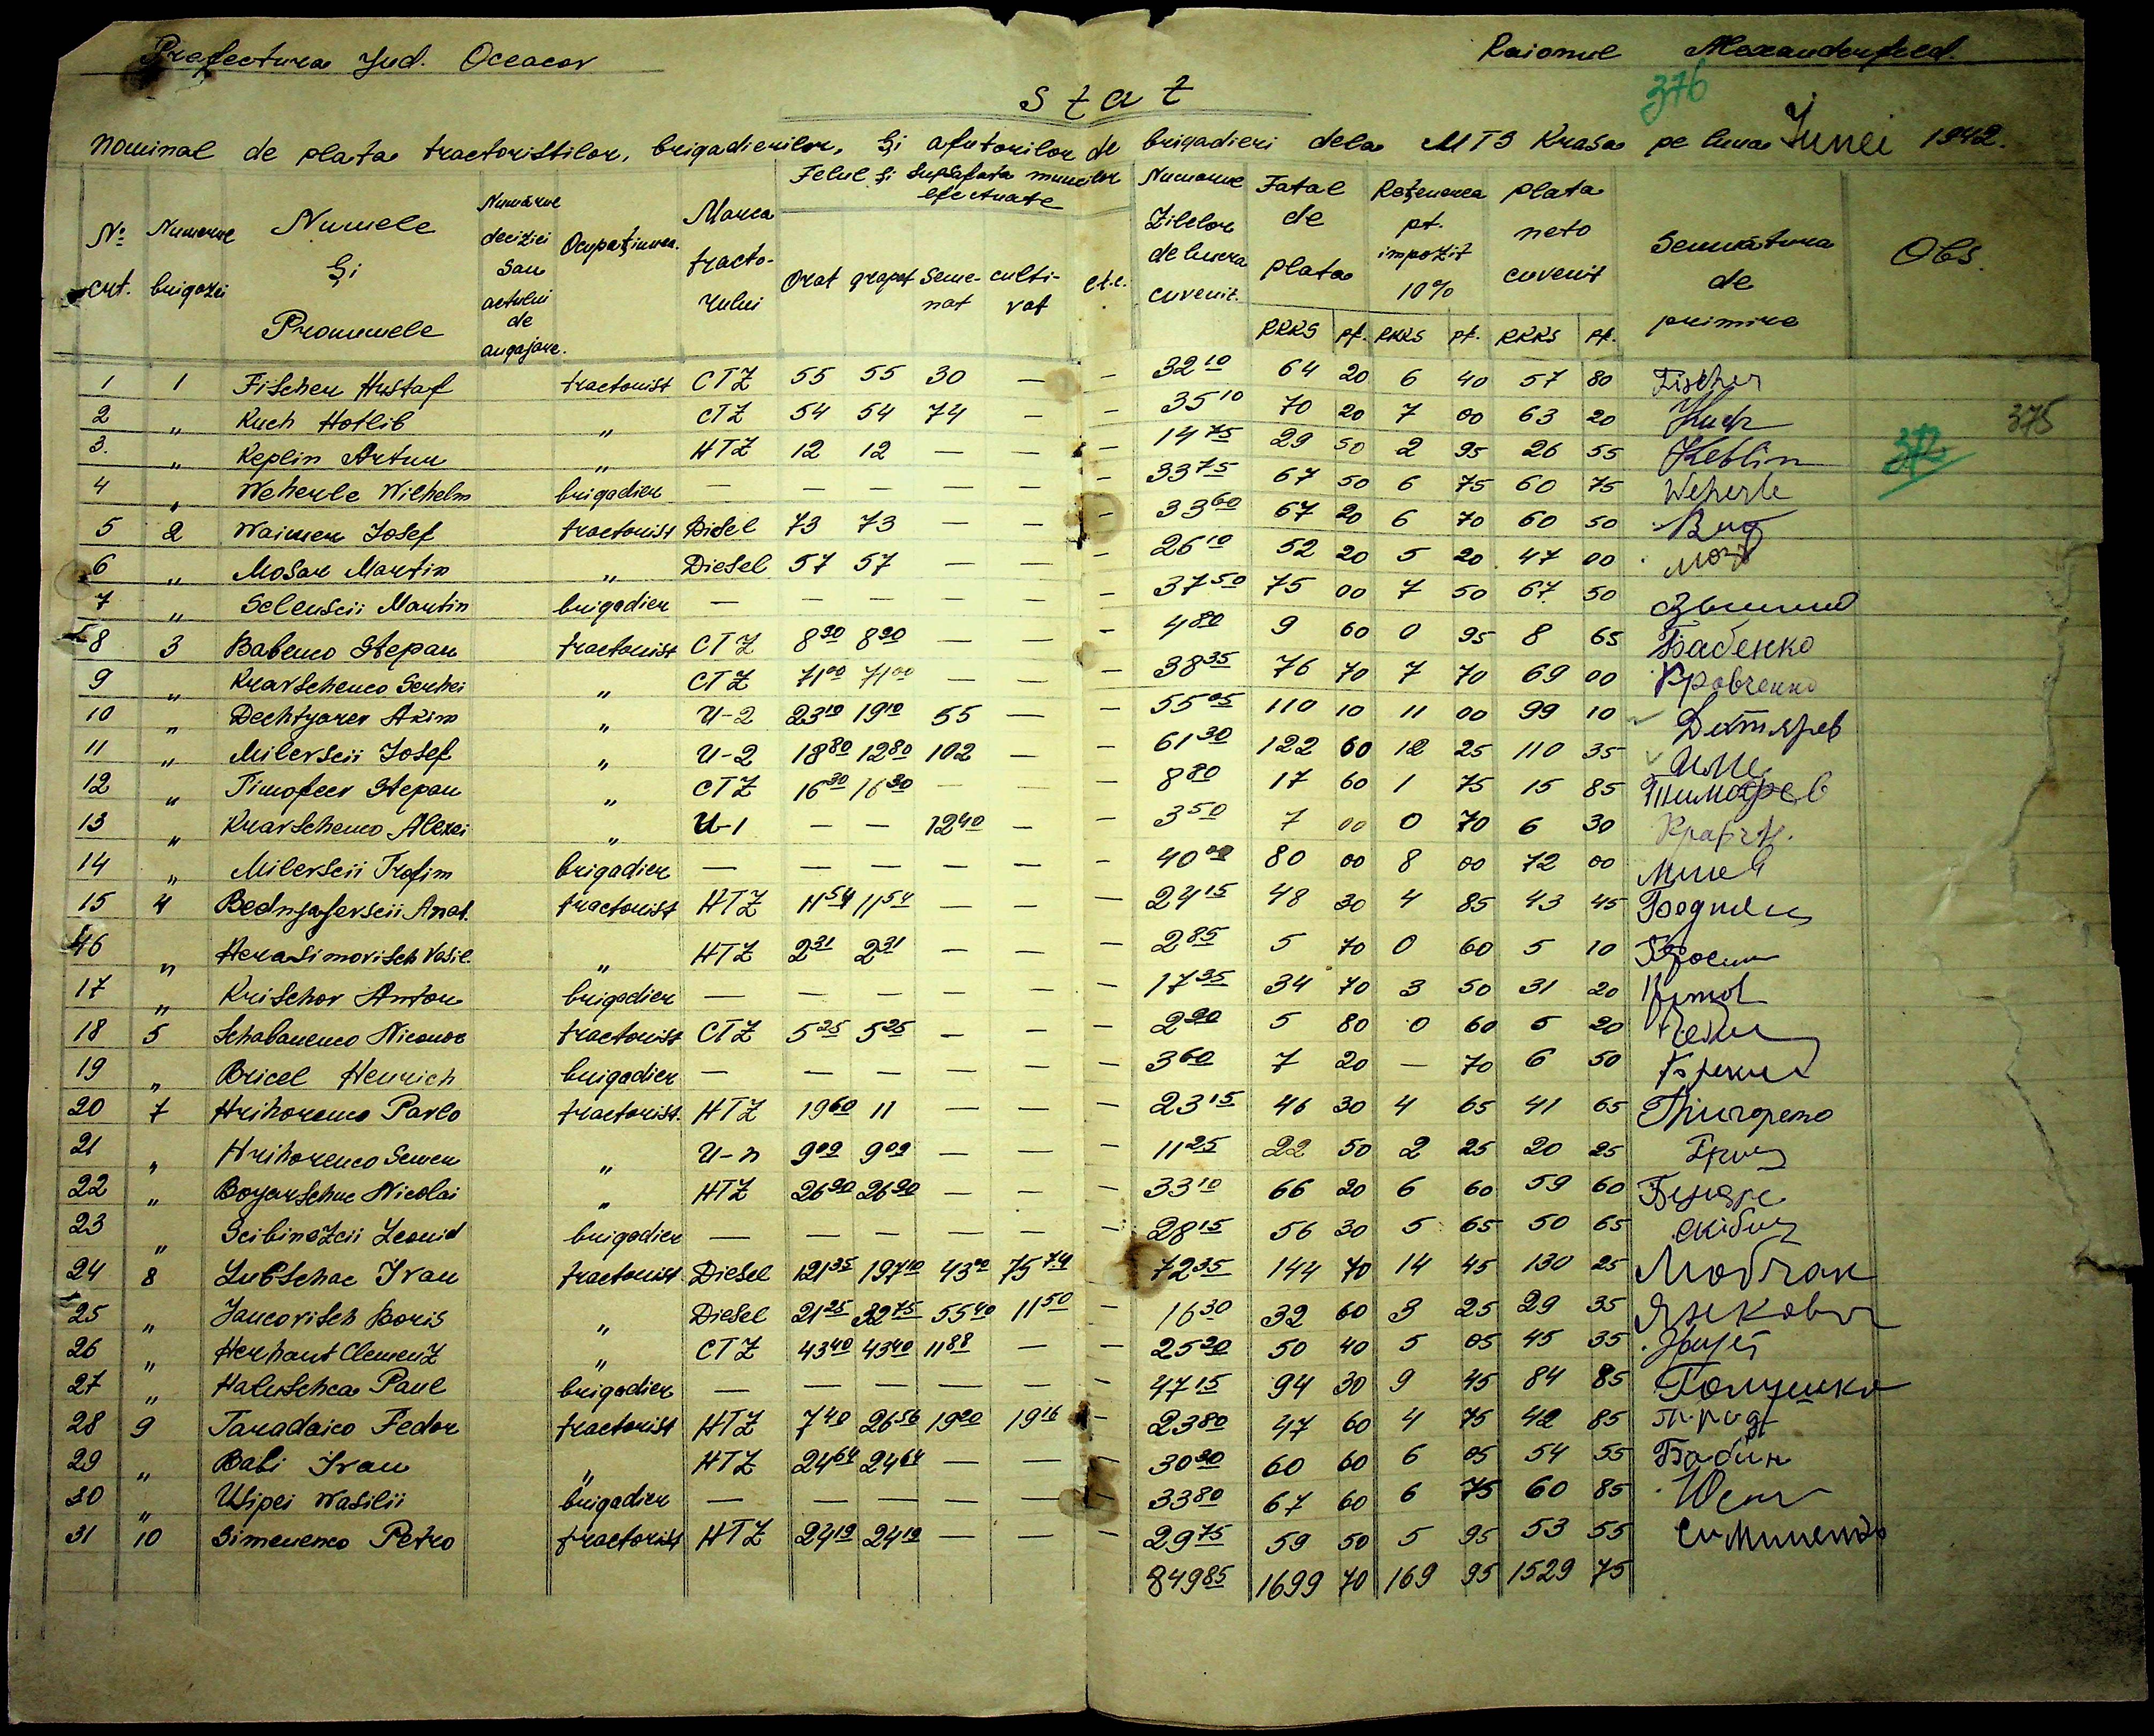 Prefectura Jud. Oceacov Raionul Alexanderfeld.
376
Stat
Nominal de plata tractoristilor, brigadierilor, și ajutorilor de brigadieri dela MTS Krasa pe luna Junei 1942.
№ crt. Numarul brigazei Numele și Pronumele Numărul deciziei sau actului de angajare. Ocupațiunea. Marca tractorului Felul și suprafata muncilor efectuate Orat grapat Semenat cultivat et.c. Numarul Zilelor de lucru cuvenit. Total de plata RKKS pf. Reţenerea pt. impozit 10% RKKS pf. plata neto cuvenit RKKS pf. Semnătura de primire Obs.
1 1 Fischer Hustaf tractorist CTZ 55 55 30 — — 32 10 64 20 6 40 57 80 Fischer
2 " Kuch Hotlib " CTZ 54 54 74 — — 35 10 70 20 7 00 63 20 Kuch 375
3. " Keplin Artur " HTZ 12 12 — — — 14 75 29 50 2 95 26 55 Keblin 372
4 " Weherle Wilhelm brigadier — — — — — — 33 75 67 50 6 75 60 75 Weherle
5 2 Waimer Josef tractorist Diesel 73 73 — — — 33 60 67 20 6 70 60 50
6 " Mosar Martin " Diesel 57 57 — — — 26 10 52 20 5 20 47 00
7 " Selenscii Martin brigadier — — — — — — 37 50 75 00 7 50 67 50
8 3 Babenco Stepan tractorist CTZ 8 90 8 90 — — — 4 80 9 60 0 95 8 65 Бабенко
9 " Kravschenco Serhei " CTZ 71 00 71 00 — — — 38 35 76 70 7 70 69 00 Кравченко
10 " Dechtyarev Akim " U-2 23 10 19 10 55 — — 55 05 110 10 11 00 99 10 Дегтярев
11 " Milevscii Josef " U-2 18 80 12 80 102 — — 61 30 122 60 12 25 110 35
12 " Timofeev Stepan " CTZ 16 30 16 30 — — — 8 80 17 60 1 75 15 85 Тимофеев
13 " Kravschenco Alexei " U-1 — — 12 40 — — 3 50 7 00 0 70 6 30
14 " Milevscii Trofim brigadier — — — — — — 40 00 80 00 8 00 72 00
15 4 Bednyajevscii Anat. tractorist HTZ 11 54 11 54 — — — 24 15 48 30 4 85 43 45
16 " Herasimovitsch Vasil. " HTZ 2 31 2 31 — — — 2 85 5 70 0 60 5 10
17 " Krischov Anton brigadier — — — — — — 17 35 34 70 3 50 31 20
18 5 Schabanenco Niconor tractorist CTZ 5 25 5 25 — — — 2 90 5 80 0 60 5 20
19 " Bricel Henrich brigadier — — — — — — 3 60 7 20 — 70 6 50
20 7 Hrihorenco Pavlo tractorist. HTZ 19 60 11 — — — 23 15 46 30 4 65 41 65
21 " Hrihorenco Semen " U-n 9 09 9 09 — — — 11 25 22 50 2 25 20 25
22 " Boyarschuc Nicolai " HTZ 26 90 26 90 — — — 33 10 66 20 6 60 59 60
23 " Scibinezcii Leonid brigadier — — — — — — 28 15 56 30 5 65 50 65
24 8 Lubschac Ivan tractorist Diesel 121 35 197 40 43 00 75 74 — 72 35 144 70 14 45 130 25
25 " Jancovitsch Boris " Diesel 21 25 32 75 55 40 11 50 — 16 30 32 60 3 25 29 35 Янкович
26 " Herhaut Clemenz " CTZ 43 40 43 40 11 88 — — 25 20 50 40 5 05 45 35
27 " Haluschca Paul brigadier — — — — — — 47 15 94 30 9 45 84 85 Галушка
28 9 Taradaico Fedor tractorist HTZ 7 40 26 56 19 20 19 16 — 23 80 47 60 4 75 42 85
29 " Babi Ivan " HTZ 24 64 24 64 — — — 30 30 60 60 6 05 54 55
30 " Usipei Wasilii brigadier — — — — — — 33 80 67 60 6 75 60 85
31 10 Simenenco Petro tractorist HTZ 24 19 24 19 — — — 29 75 59 50 5 95 53 55 Симиненко
849 85 1699 70 169 95 1529 75